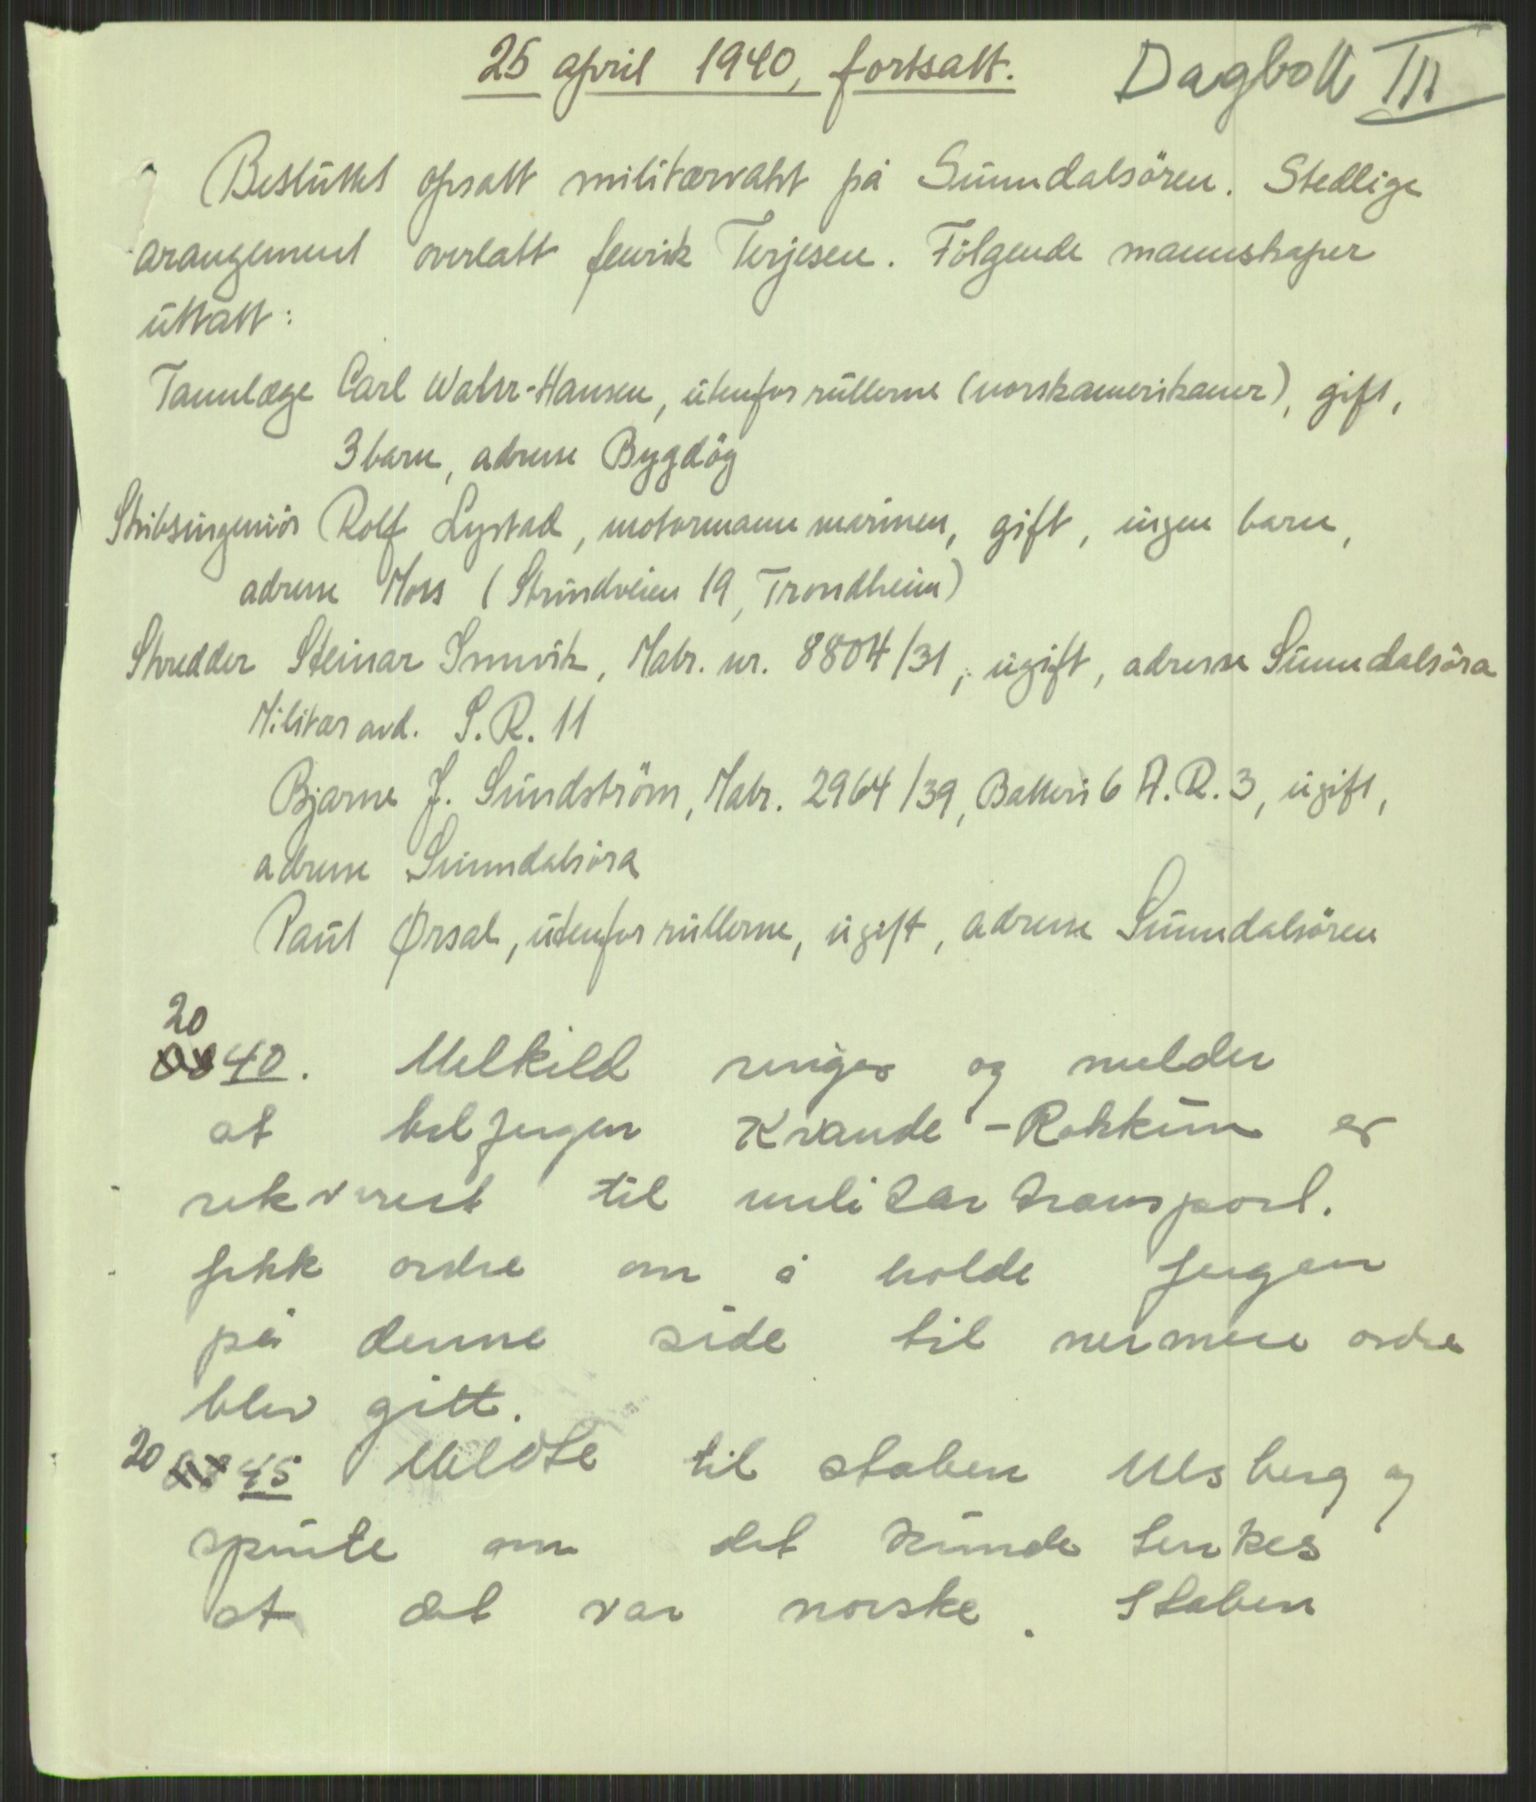 25 april 1940, fortsatt. Dagbok III
Besluttet opsatt militærvakt på Sunndalsören. Stedlige
arangement overlatt fenrik Terjesen. Fölgende mannskaper
uttatt:
Tannlæge Carl Wahr-Hansen, utenfor rullerne (norskamerikaner), gift,
3 barn, adresse Bygdög
Skibsingeniör Rolf Lystad, motormann marinen, gift, ingen barn,
adresse Moss (Strindveien 19, Trondheim)
Skredder Steinar Snuvik, Matr. nr. 8804/31, ugift, adresse Sunndalsöra
Militær avd. I.R. 11
Bjarne J. Sundström, Matr. 2964/39, Batteri 6 A.R. 3, ugift,
adresse Sunndalsöra
Paul Ørsal, utenfor rullerne, ugift, adresse Sunndalsören
20
40. Melkild ringer og melder
at bilfergen Kvande-Rokkum er
rekvirert til militærtransport.
fikk ordre om å holde fergen
på denne side til nermere ordre
blev gitt.
20 45 Meldte til staben Ulsberg og
spurte om det kunde tenkes
at det var norske. Staben